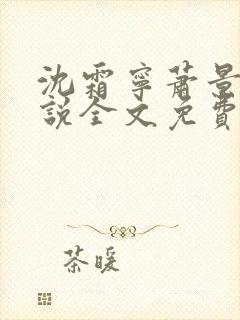 沈霜寧蕭景
說全文免費
茶暖